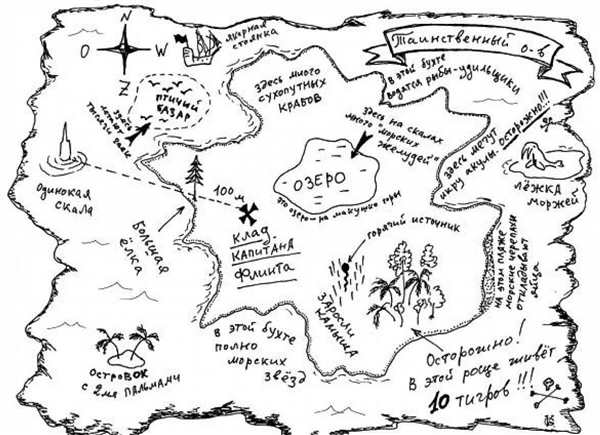 Таинственный о-в
якорная
стоянка
N
O
W
Z
в этой бухте
водятся рыбы-удильщики
здесь много
сухопутных
крабов
птичий
базар
здесь
летают
тысячи чаек
здесь на скалах
много „морских
желудей"
здесь мечут
икру акулы. Осторожно!!!
лёжка
моржей
одинокая
скала
озеро
это озеро - на макушке горы
100м
клад
капитана
Флинта
большая
ёлка
горячий источник
заросли
камыша
на этом пляже
морские черепахи
откладывают
яйца
в этой бухте
полно
морских
звёзд
островок
с 2мя пальмами
Осторожно!
в этой роще живёт
10 тигров!!!